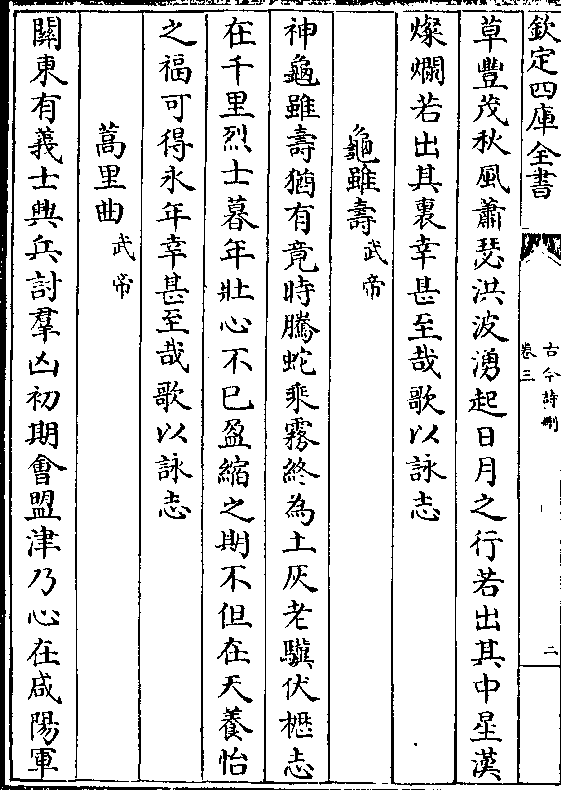 欽定四庫全書
古今詩刪
卷三
二
草豐茂秋風蕭瑟洪波湧起日月之行若出其中星漢
燦爛若出其裏幸甚至哉歌以詠志
龜雖壽武帝
神龜雖壽猶有竟時騰蛇乘霧終為土灰老驥伏櫪志
在千里烈士暮年壯心不已盈縮之期不但在天養怡
之福可得永年幸甚至哉歌以詠志
蒿里曲武帝
關東有義士興兵討羣凶初期會盟津乃心在咸陽軍